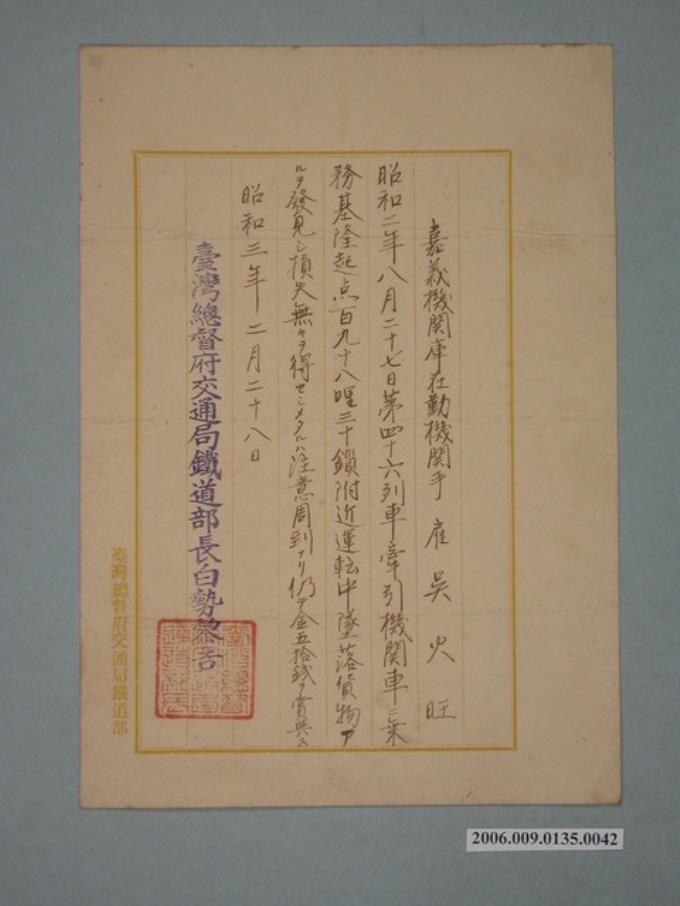 嘉義機関庫在勤機関手 雇 吳火旺
昭和二年八月二十七日第四十六列車牽引機関車ニ乘
務基隆起点百九十八哩三十鎖附近運転中墜落貨物ア
ルヲ發見シ損失無キヲ得セシメタルハ注意周到ナリ仍テ金五拾錢ヲ賞與ス
昭和三年二月二十八日
臺灣總督府交通局鐵道部長白勢黎吉
臺灣總督府交通局鐵道部
2006.009.0135.0042